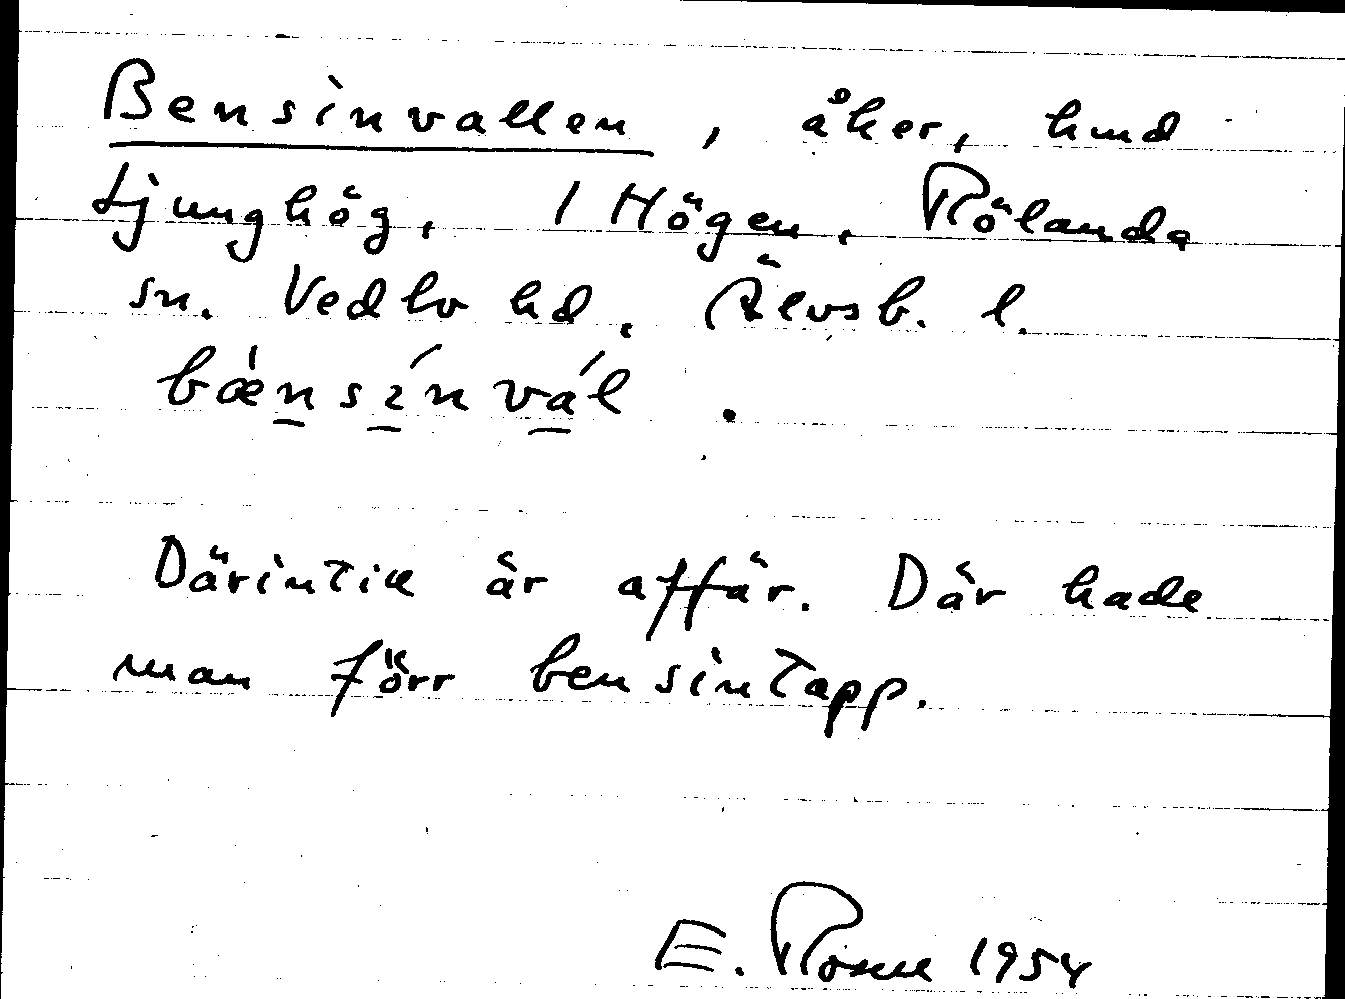 Bensinvallen, åker, hmd
Ljunghög, 1 Högen, Rölanda
sn. Vedbo hd, Älvsb. l.
bænsínvál.
Därintill är affär. Där hade
man förr bensintapp.
E. Rosell 1954